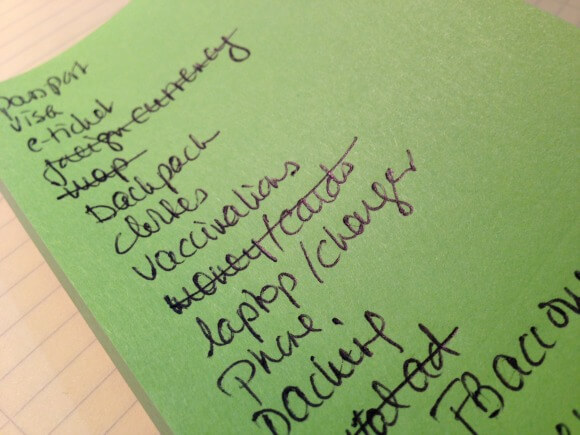 passport
visa
e-ticket
foreign currency
map
backpack
clothes
vaccinations
money/cards
laptop/charger
Phone.
packing